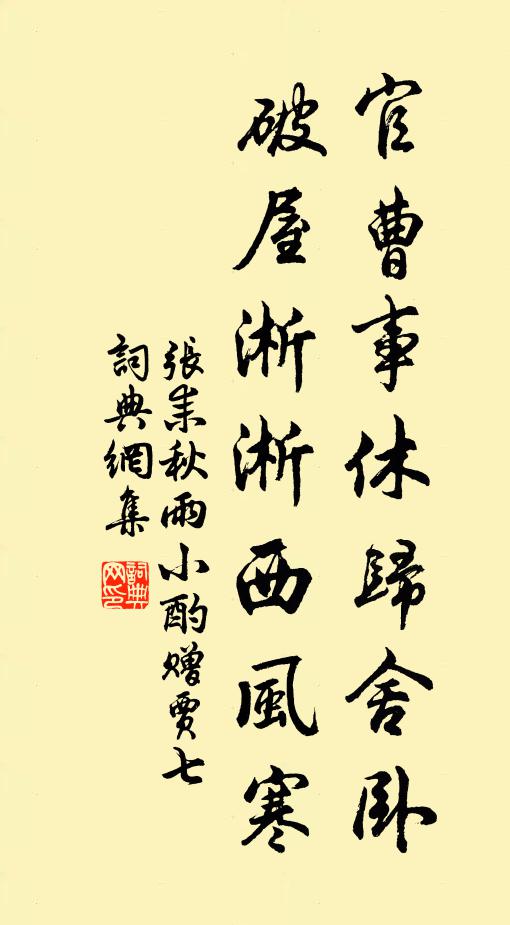 官曹事休歸舍臥
破屋淅淅西風寒
張耒秋雨小酌贈賈七
詞典網集
詞典
网印